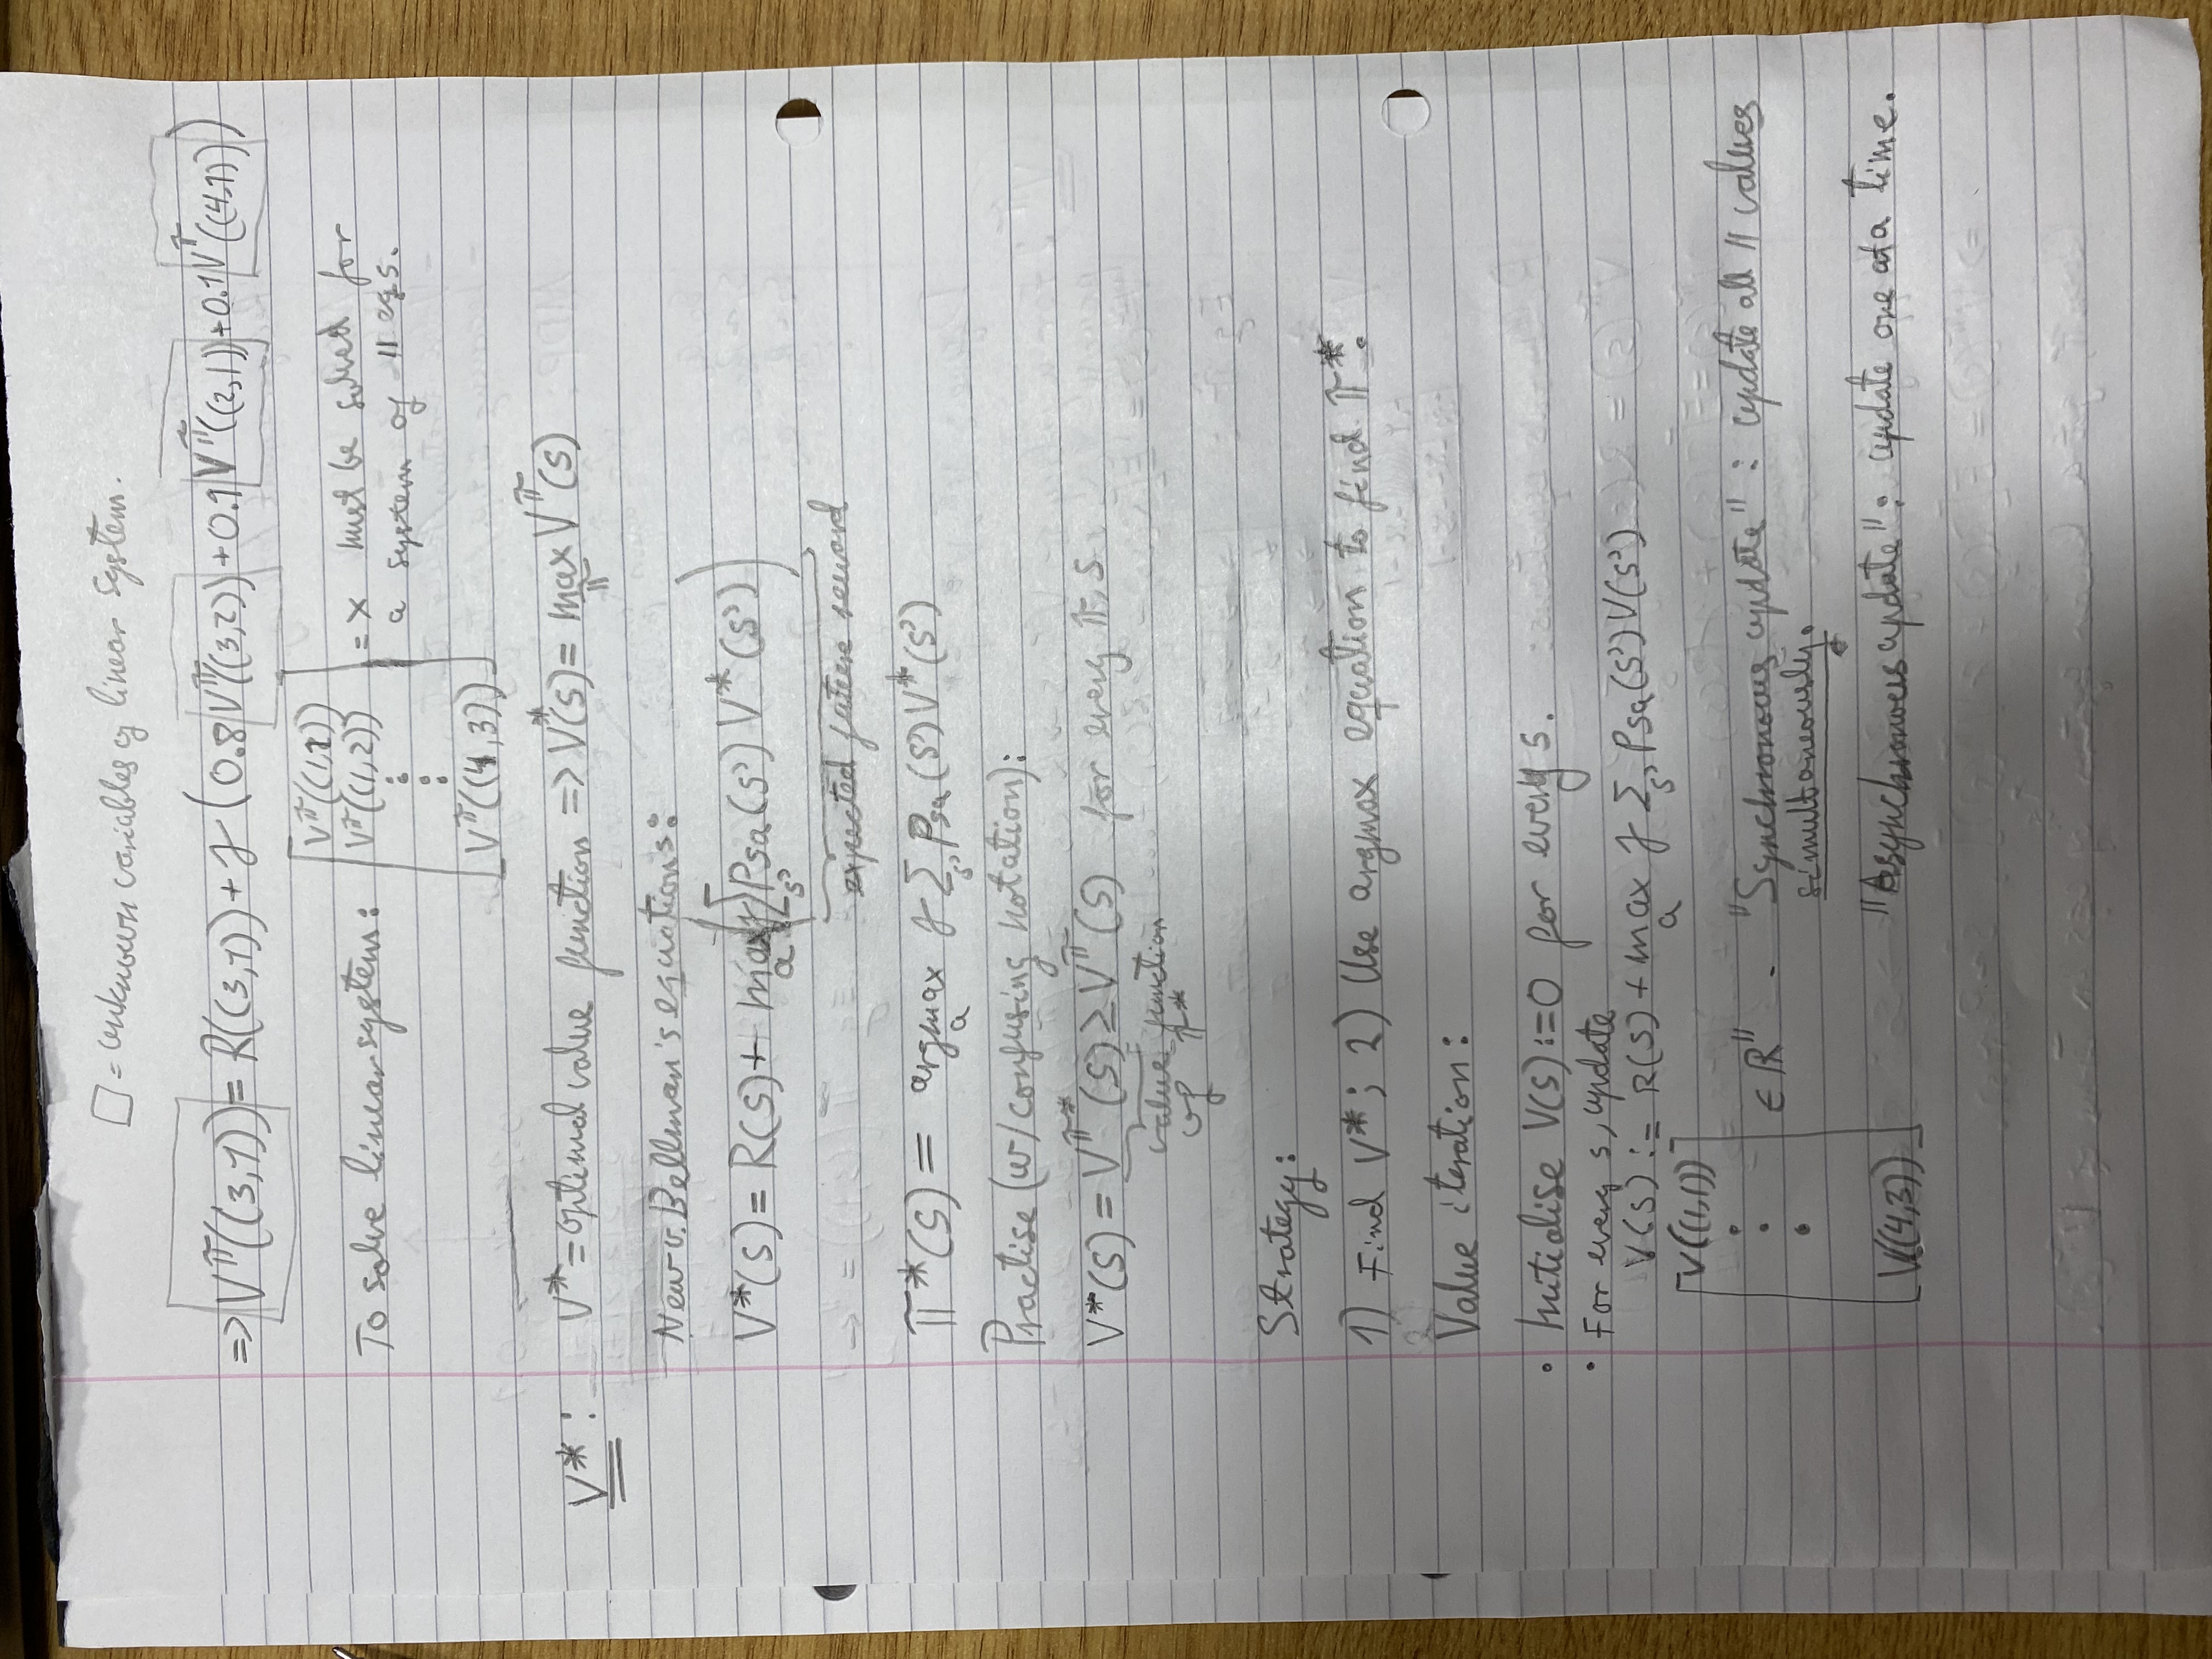 □ = unknown variables of linear system.
=> V^π((3,1)) = R((3,1)) + γ (0.8 V^π((3,2)) + 0.1 V^π((2,1)) + 0.1 V^π((4,1)))
To solve linear system: [V^π((1,1)) V^π((1,2)) ⋮ V^π((4,3))] = x must be solved for
a system of 11 eqs.
V*: V* = optimal value function => V*(s) = max_π V^π(s)
New v. Bellman's equations:
V*(s) = R(s) + max_a (γ Σ_s' Psa(s') V*(s'))
expected future reward
π*(s) = argmax_a γ Σ_s' Psa(s') V*(s')
Practise (w/ confusing notation):
V*(s) = V^π*(s) ≥ V^π(s) for every π, s
value function
of π*
Strategy:
1) Find V*; 2) Use argmax equation to find π*.
Value iteration:
• Initialise V(s) := 0 for every s.
• For every s, update
V(s) := R(s) + max_a γ Σ_s' Psa(s') V(s')
[V((1,1)) ⋮ V((4,3))] ∈ ℝ^11 . "Synchronous update" : update all 11 values
simultaneously.
"Asynchronous update" : update one at a time.